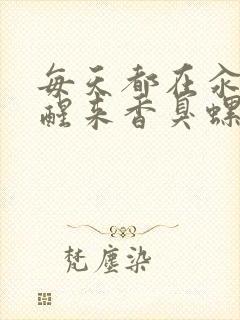 每天都在汆
醒来香臭螺
梵塵染